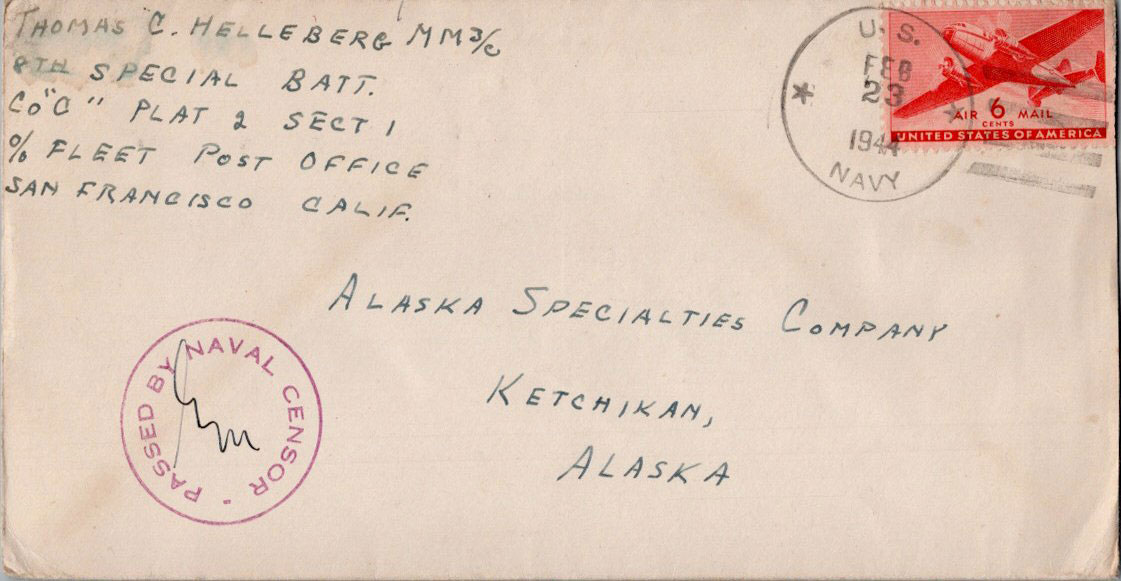 THOMAS C. HELLEBERG MM3/C
8TH SPECIAL BATT.
CO "C" PLAT 2 SECT 1
% FLEET POST OFFICE
SAN FRANCISCO CALIF.
U. S.
FEB
23
1944
NAVY
AIR 6 MAIL
CENTS
UNITED STATES OF AMERICA
ALASKA SPECIALTIES COMPANY
KETCHIKAN,
ALASKA
PASSED BY NAVAL CENSOR